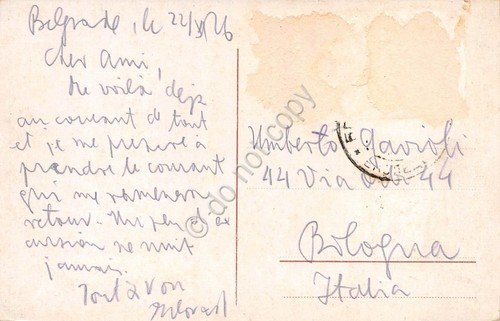 Belgrade, le 22/XI 26
Cher Ami,
Me voilà déjà
au courant de tout
et je me prépare à
prendre le courant
qui me ramènera
retour. Un peu d'ex
cursion ne nuit
jamais.
Tout à Vous
Umberto Gavioli
44 Via 44
Bologna
Italia
do not copy